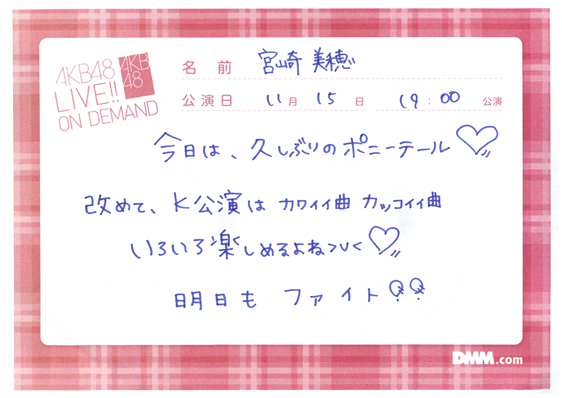 AKB48
LIVE!!
ON DEMAND
AKB
48
名前 宮崎美穂
公演日 11月 15日 19:00 公演
今日は、久しぶりのポニーテール♡
改めて、K公演は カワイイ曲 カッコイイ曲
いろいろ楽しめるよね>U<♡
明日も ファイト!!
DMM.com